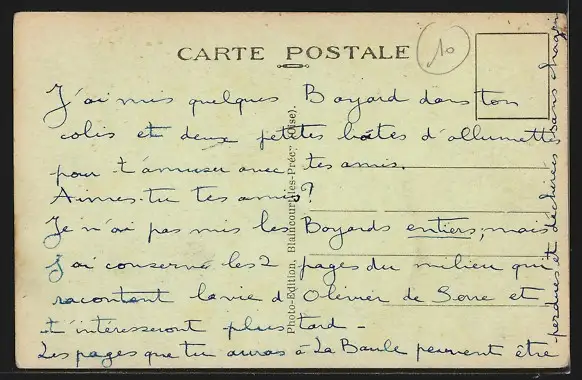 CARTE POSTALE
10
J'ai mis quelques Bayard dans ton
colis et deux petites boîtes d'allumettes
pour t'amuser avec tes amis.
Aimes-tu tes amis?
Je n'ai pas mis les Bayards entiers, mais
j'ai conservé les 2 pages du milieu qui
racontent la vie d'Olivier de Serre et
t'intéresseront plus tard -
Les pages que tu auras à La Baule peuvent être
perdues et déchirées sans chagrin
Photo-Edition, Blaincourt-les-Précy (Oise).